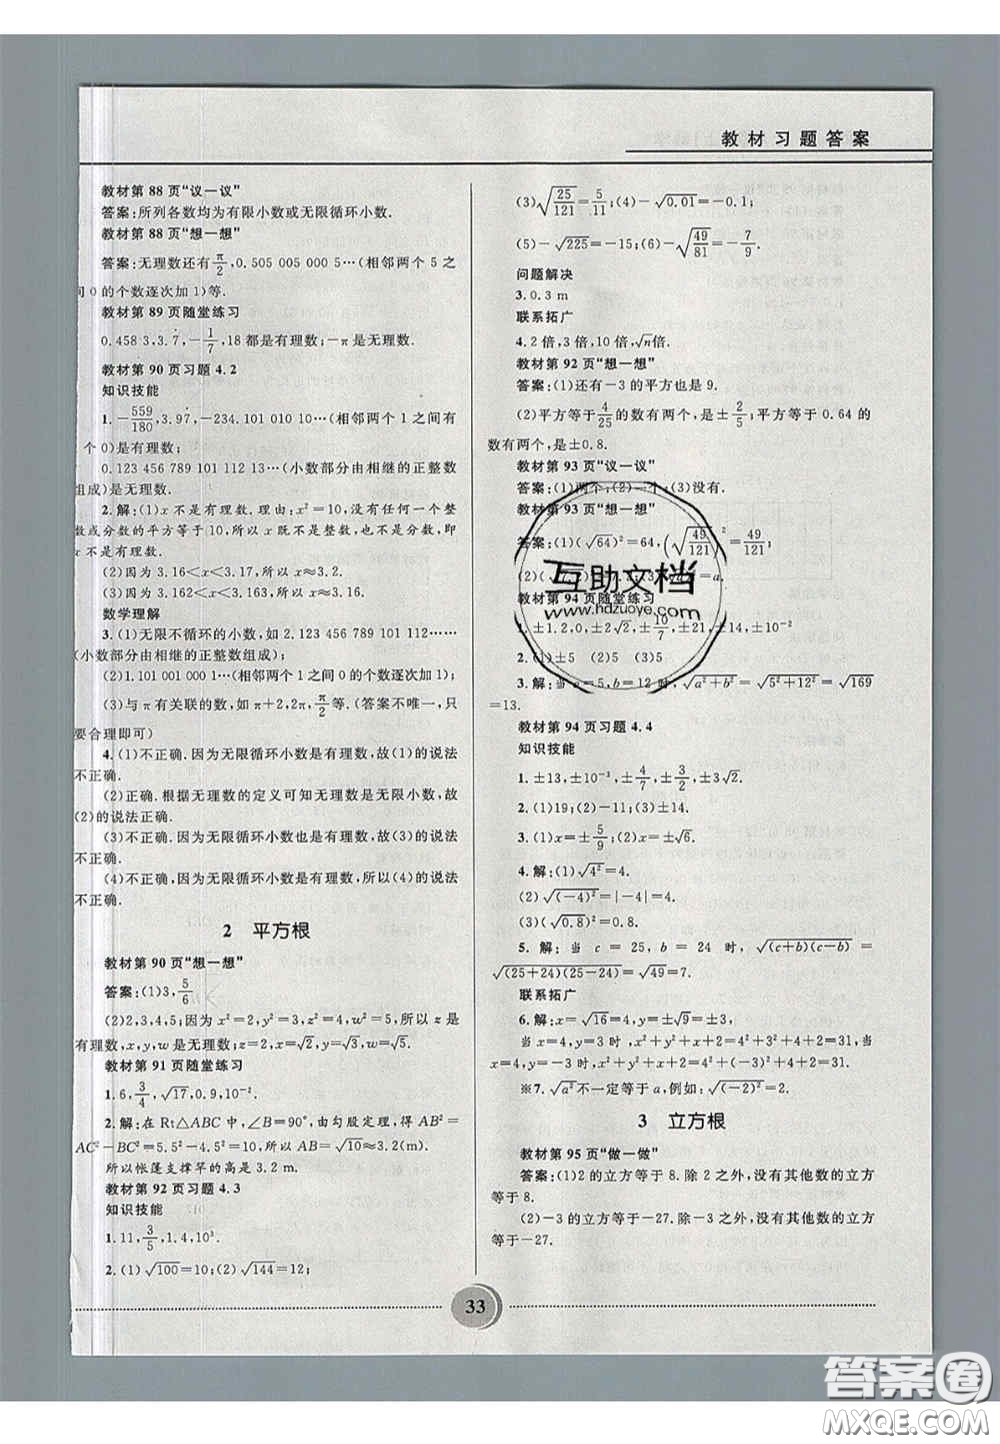 教材习题答案
教材第 88 页“议一议”
答案:所列各数均为有限小数或无限循环小数.
教材第 88 页“想一想”
答案:无理数还有π/2,0.505 005 000 5…(相邻两个 5 之
间 0 的个数逐次加 1)等.
教材第 89 页随堂练习
0.458 3,3.7̇,-1/7,18 都是有理数;-π是无理数.
教材第 90 页习题 4.2
知识技能
1.-559/180,3.9̇7̇,-234.101 010 10…(相邻两个 1 之间有
个 0)是有理数;
0.123 456 789 101 112 13…(小数部分由相继的正整数
组成)是无理数.
2.解:(1)x 不是有理数.理由:x²=10,没有任何一个整
数或分数的平方等于 10,所以 x 既不是整数,也不是分数,即
x 不是有理数.
(2)因为 3.16<x<3.17,所以 x≈3.2.
(3)因为 3.162<x<3.163,所以 x≈3.16.
数学理解
3.(1)无限不循环的小数,如 2.123 456 789 101 112 13…
…(小数部分由相继的正整数组成);
(2)1.101 001 000 1…(相邻两个 1 之间 0 的个数逐次加 1);
(3)与π有关联的数,如π+2,2π,π/2等.(答案不唯一,只
要合理即可)
4.(1)不正确.因为无限循环小数是有理数,故(1)的说法
不正确.
(2)正确.根据无理数的定义可知无理数是无限小数,故
(2)的说法正确.
(3)不正确.因为无限循环小数也是有理数,故(3)的说法
不正确.
(4)不正确.因为无限循环小数是有理数,所以(4)的说法
不正确.
2 平方根
教材第 90 页“想一想”
答案:(1)3,5/6
(2)2,3,4,5;因为 x²=2,y²=3,z²=4,w²=5,所以 z 是
有理数,x,y,w 是无理数;z=2,x=√2,y=√3,w=√5.
教材第 91 页随堂练习
1.6,3/4,√17,0.9,10⁻².
2.解:在 Rt△ABC 中,∠B=90°,由勾股定理,得 AB²=
AC²-BC²=5.5²-4.5²=10,所以 AB=√10≈3.2(m).
所以帐篷支撑竿的高是 3.2 m.
教材第 92 页习题 4.3
知识技能
1.11,3/5,1.4,10³.
2.(1)√100=10;(2)√144=12;
(3)√(25/121)=5/11;(4)-√0.01=-0.1;
(5)-√225=-15;(6)-√(49/81)=-7/9.
问题解决
3.0.3 m
联系拓广
4.2 倍,3 倍,10 倍,√n倍.
教材第 92 页“想一想”
答案:(1)还有-3 的平方也是 9.
(2)平方等于4/25的数有两个,是±2/5;平方等于 0.64 的
数有两个,是±0.8.
教材第 93 页“议一议”
答案:(1)两个;(2)一个;(3)没有.
教材第 93 页“想一想”
答案:(1)(√64)²=64,(√(49/121))²=49/121;
=a.
教材第 94 页随堂练习
1.±1.2,0,±2√2,±10/7,±21,±14,±10⁻²
2.(1)±5 (2)5 (3)5
3.解:当 a=5,b=12 时,√(a²+b²)=√(5²+12²)=√169
=13.
教材第 94 页习题 4.4
知识技能
1.±13,±10⁻³,±4/7,±3/2,±3√2.
2.(1)19;(2)-11;(3)±14.
3.(1)x=±5/9;(2)x=±√6.
4.解:(1)√4²=4.
(2)√(-4)²=|-4|=4.
(3)(√0.8)²=0.8.
5.解:当 c=25,b=24 时,√((c+b)(c-b))=
√((25+24)(25-24))=√49=7.
联系拓广
6.解:x=√16=4,y=±√9=±3,
当 x=4,y=3 时,x²+y²+x+y=4²+3²+4+3=32;
当 x=4,y=-3 时,x²+y²+x+y=4²+(-3)²+4+(-3)=26.
※7.√a²不一定等于 a,例如:√(-2)²=2.
3 立方根
教材第 95 页“做一做”
答案:(1)2 的立方等于 8.除 2 之外,没有其他数的立方
等于 8.
(2)-3 的立方等于-27.除-3 之外,没有其他数的立方
等于-27.
33
互助文档
www.hdzuoye.com
答案圈
MXQE.COM